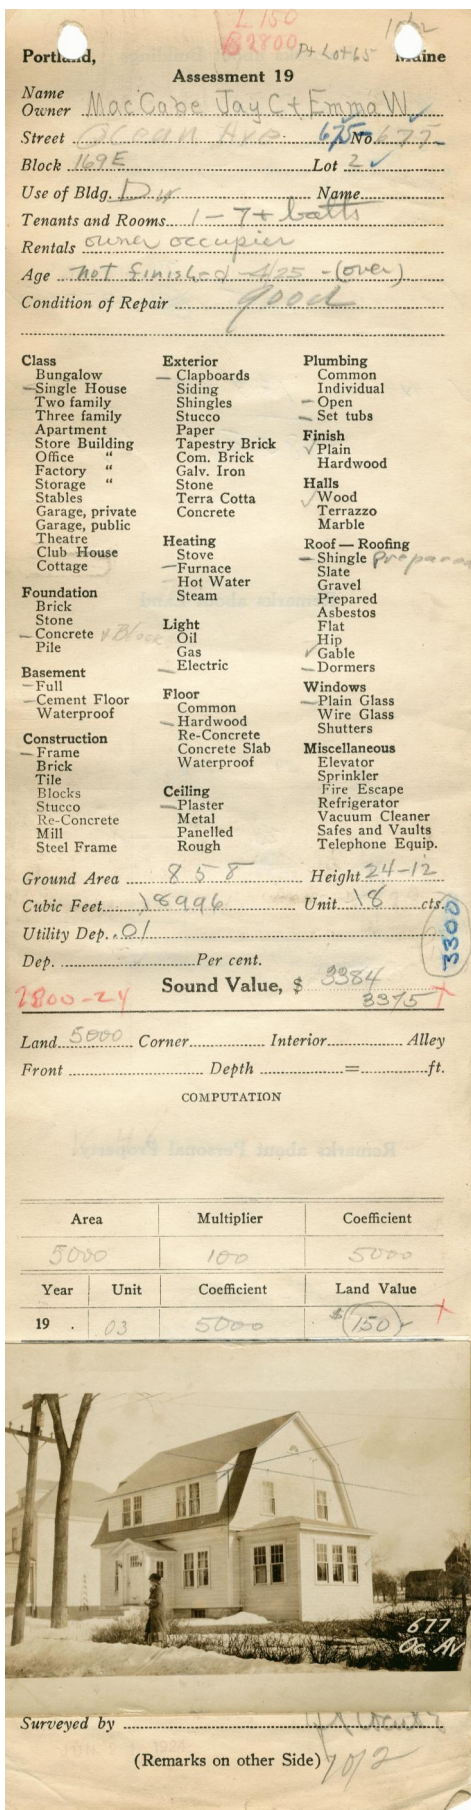 L 150
B 2800
Pt Lot 65
Portland, Maine
Assessment 19
Name
Owner MacCabe Jay C + Emma W
Street Ocean Ave. 675- No. 677-
Block 169E Lot 2
Use of Bldg. Dw Name
Tenants and Rooms 1 - 7 + bath
Rentals owner occupier
Age not finished - 4/25 - (over)
Condition of Repair good
Class
Bungalow
Single House
Two family
Three family
Apartment
Store Building
Office "
Factory "
Storage "
Stables
Garage, private
Garage, public
Theatre
Club House
Cottage
Foundation
Brick
Stone
Concrete + Block
Pile
Basement
Full
Cement Floor
Waterproof
Construction
Frame
Brick
Tile
Blocks
Stucco
Re-Concrete
Mill
Steel Frame
Exterior
Clapboards
Siding
Shingles
Stucco
Paper
Tapestry Brick
Com. Brick
Galv. Iron
Stone
Terra Cotta
Concrete
Heating
Stove
Furnace
Hot Water
Steam
Light
Oil
Gas
Electric
Floor
Common
Hardwood
Re-Concrete
Concrete Slab
Waterproof
Ceiling
Plaster
Metal
Panelled
Rough
Plumbing
Common
Individual
Open
Set tubs
Finish
Plain
Hardwood
Halls
Wood
Terrazzo
Marble
Roof — Roofing
Shingle Prepared
Slate
Gravel
Prepared
Asbestos
Flat
Hip
Gable
Dormers
Windows
Plain Glass
Wire Glass
Shutters
Miscellaneous
Elevator
Sprinkler
Fire Escape
Refrigerator
Vacuum Cleaner
Safes and Vaults
Telephone Equip.
Ground Area 858 Height 24-12
Cubic Feet 18996 Unit 18 cts.
Utility Dep. 01
3300
Dep. Per cent.
Sound Value, $ 3384
2800-24 3375
Land 5000 Corner Interior Alley
Front Depth = ft.
COMPUTATION
Remarks about Personal Property.
Area Multiplier Coefficient
5000 100 5000
Year Unit Coefficient Land Value
19 . 03 5000 $ 150-
677
Oc Av
Surveyed by
(Remarks on other Side) 1012